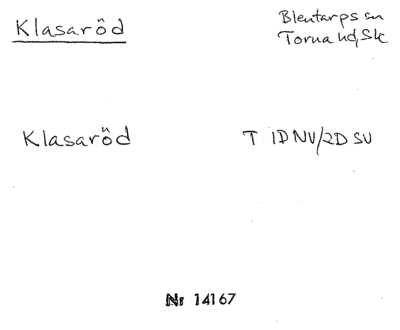 Klasaröd
Blentarps sn
Torna hd, Sk
Klasaröd T 1D NV/2D SV
Nr 14167